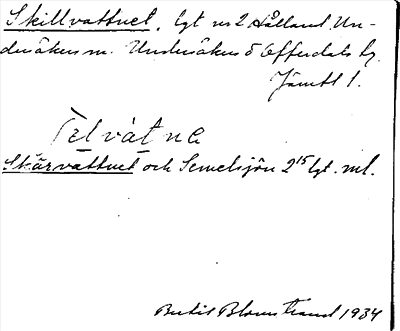 Skillvattnet, lgt nr 2 Hålland, Un-
dersåkers sn. Undersåkers o Offerdals tg.
Jämtl l.
Skärvattnet och Semelsjön 2¹⁵ lgt. ml.
Bertil Blomstrand 1934